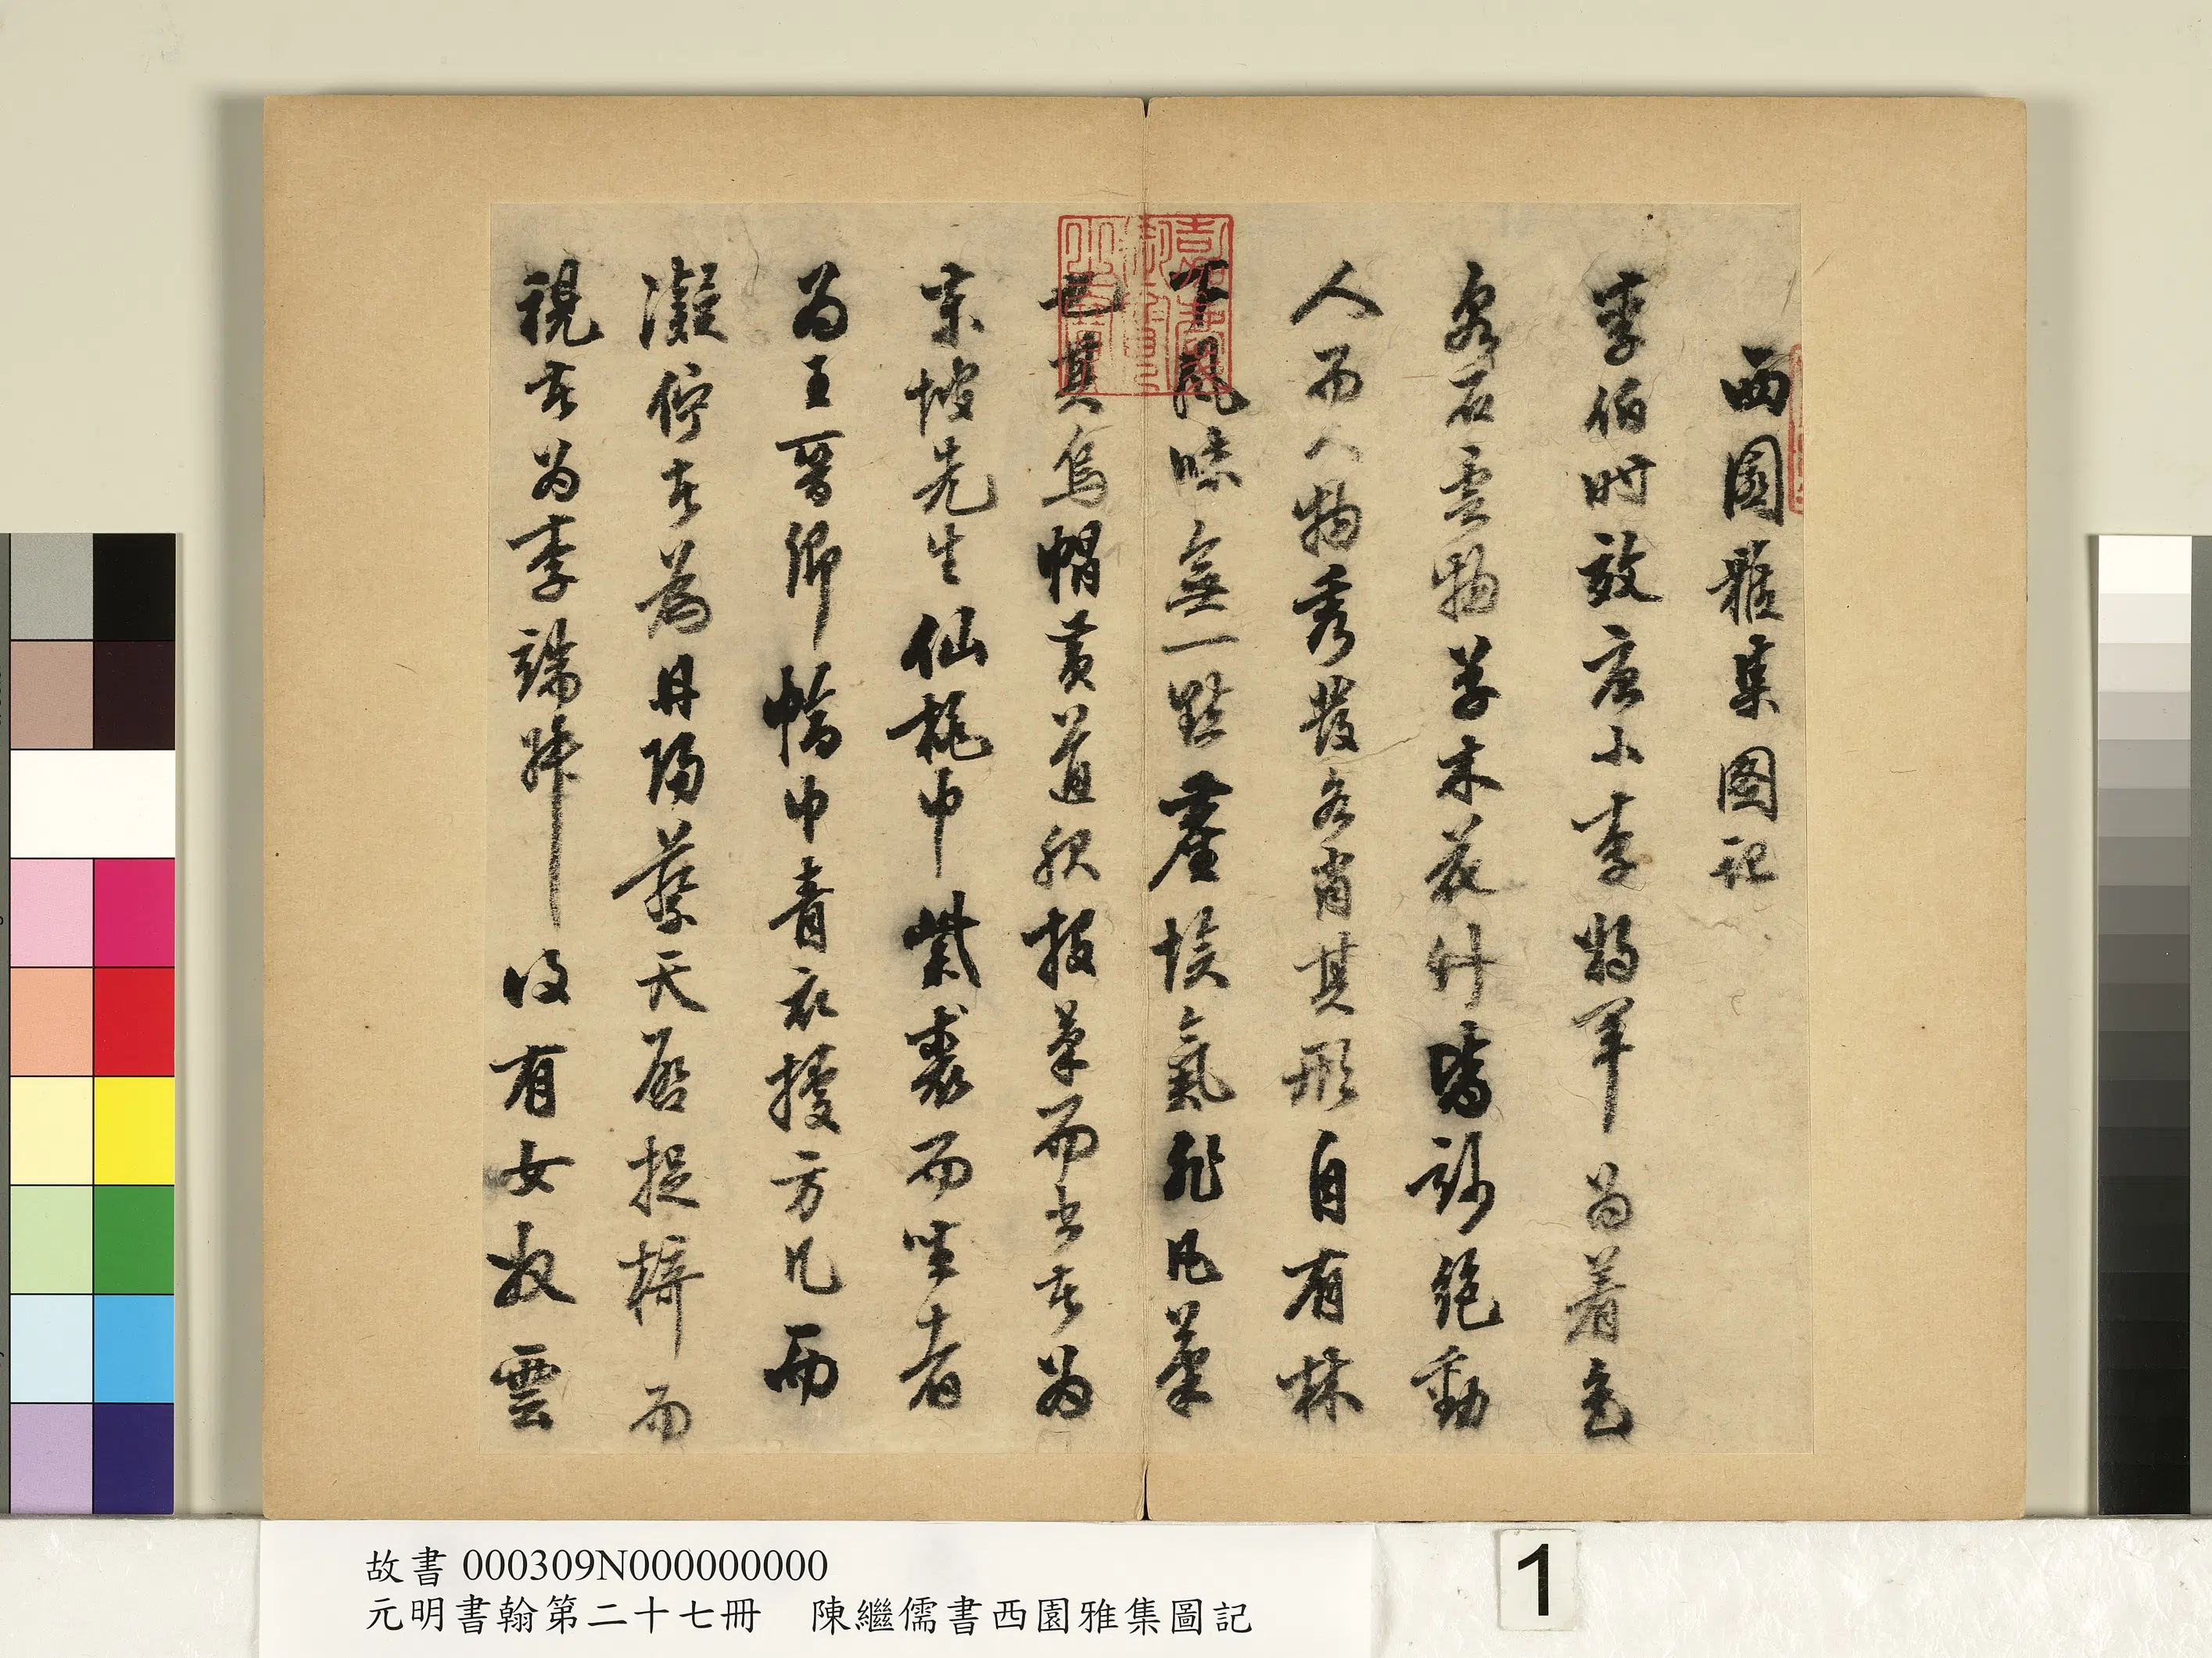 西園雅集图記
李伯时效唐小李將軍為着色
泉石雲物草木花竹皆妙絕動
人而人物秀發各肖其形自有林
下風味無一點塵埃氣非凡筆
也其烏帽黃道服筆而書者為
東坡先生仙桃巾紫裘而坐者
為王晉卿幅巾青衣據方几而
凝佇者為丹陽蔡天启捉椅而
視者為李端叔後有女奴雲
故書 000309N000000000
元明書翰第二十七冊 陳繼儒書西園雅集圖記
1